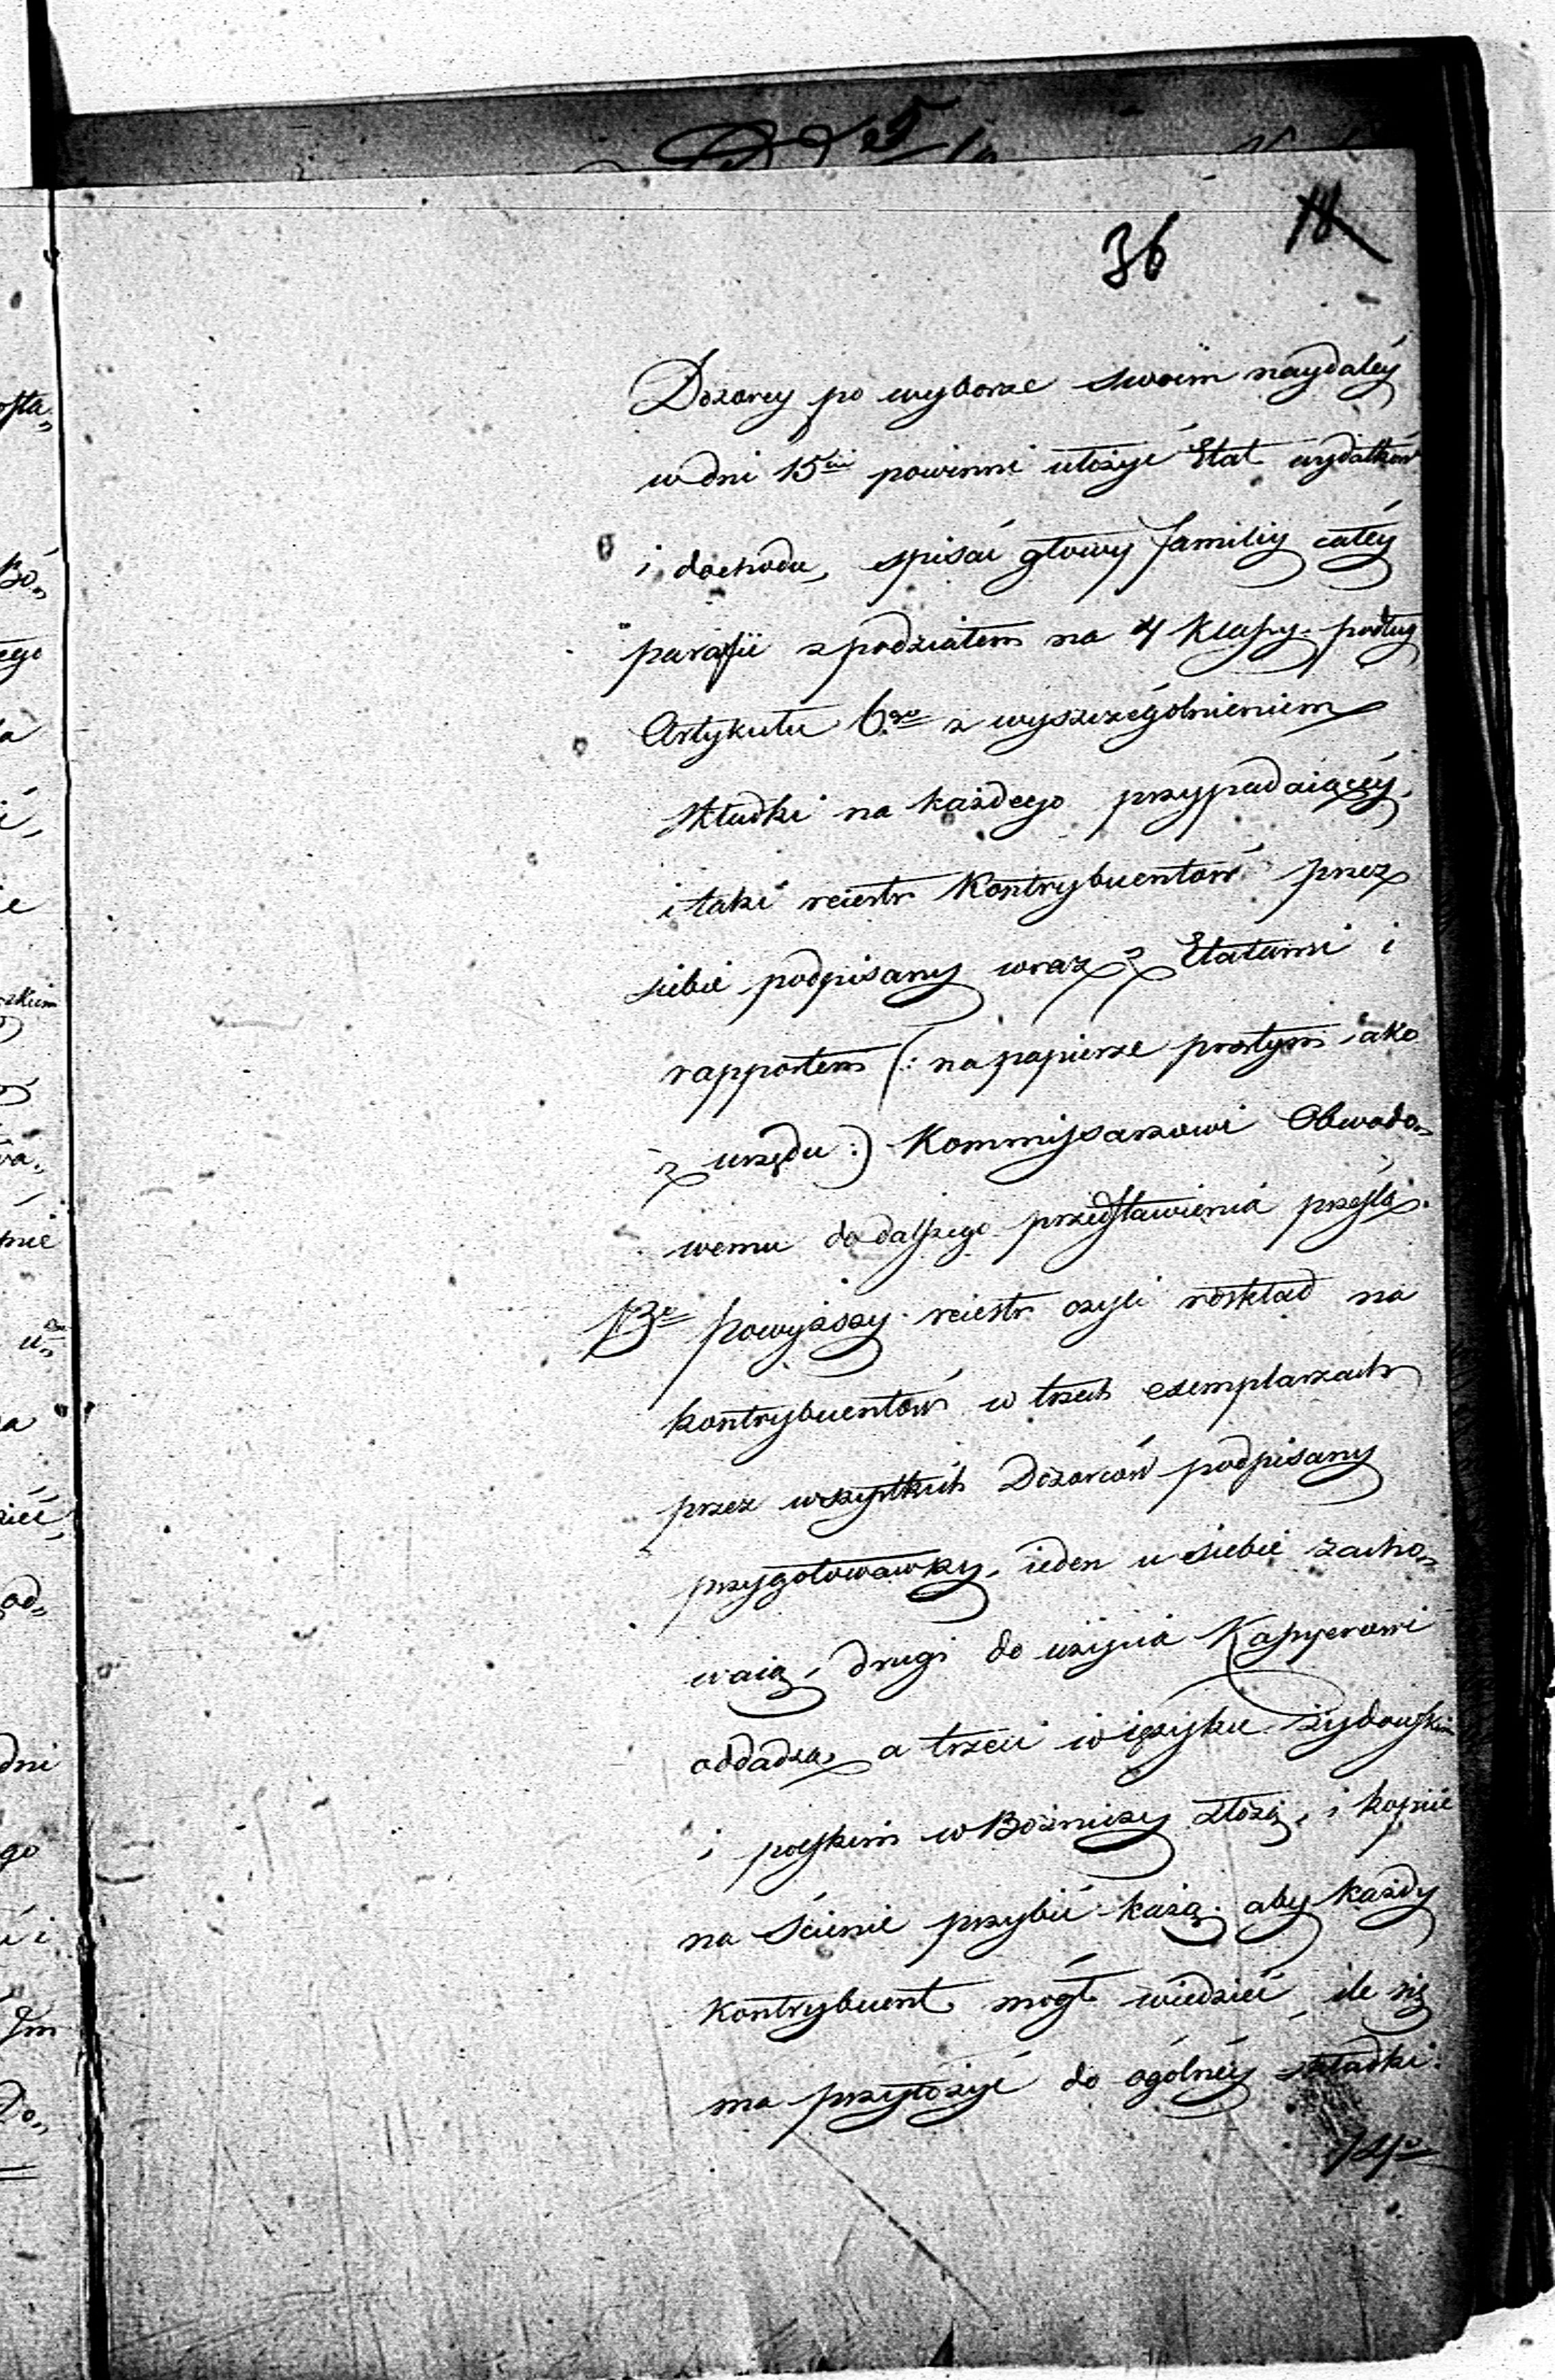 36 18
Dozorcy po wyborze swoim naydaléy
w dni 15cie powinni ułożyć Etat wydatków
i dochodu, spisać głowy familiy całéy
parafii z podziałem na 4 klassy podług
Artykułu 6go z wyszczególnieniem
składki na każdego przypadaiącéy,
i taki reiestr Kontrybuentów przez
siebie podpisany wraz z Etatami i
rapportem (: na papierze prostym iako
z urzędu :) Kommissarzowi Obwodo„
wemu do dalszego przedstawienia prześlą.
13o powyższy reiestr czyli rozkład na
kontrybuentów w trzech exemplarzach
przez wszystkich Dozorców podpisany
przygotowawszy, ieden u siebie zacho„
waią, drugi do użycia Kassyerowi
oddadzą, a trzeci w ięzyku żydowskim
i polskim w Bożnicy złożą, i kopiie
na ścienie przybić każą, aby każdy
kontrybuent mógł wiedzieć, ile się
ma przyłożyć do ogólnéy składki.
14o
ossta„
Bó„
ego
a
ć,
ie
skim
wa„
nie
u„
a
zieć,
od„
dni
go
ć i
Do„